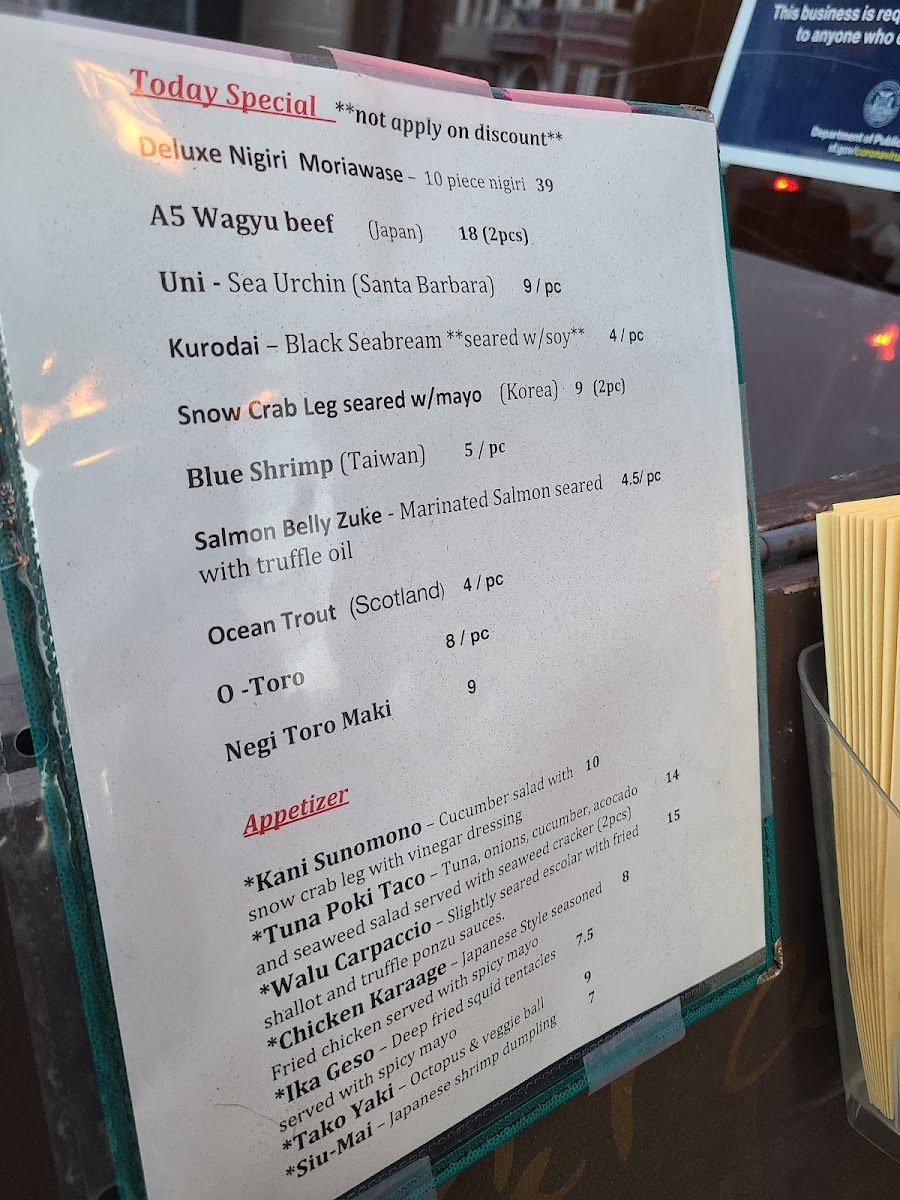 Today Special **not apply on discount**
Deluxe Nigiri Moriawase – 10 piece nigiri 39
A5 Wagyu beef (Japan) 18 (2pcs)
Uni - Sea Urchin (Santa Barbara) 9 / pc
Kurodai – Black Seabream **seared w/soy** 4 / pc
Snow Crab Leg seared w/mayo (Korea) 9 (2pc)
Blue Shrimp (Taiwan) 5 / pc
Salmon Belly Zuke - Marinated Salmon seared 4.5/ pc
with truffle oil
Ocean Trout (Scotland) 4 / pc
O -Toro 8 / pc
Negi Toro Maki 9
Appetizer
*Kani Sunomono – Cucumber salad with 10
snow crab leg with vinegar dressing
*Tuna Poki Taco – Tuna, onions, cucumber, acocado 14
and seaweed salad served with seaweed cracker (2pcs)
*Walu Carpaccio – Slightly seared escolar with fried 15
shallot and truffle ponzu sauces.
*Chicken Karaage – Japanese Style seasoned 8
Fried chicken served with spicy mayo
*Ika Geso – Deep fried squid tentacles 7.5
served with spicy mayo
*Tako Yaki – Octopus & veggie ball 9
*Siu-Mai – Japanese shrimp dumpling 7
This business is req
to anyone who
Department of Public